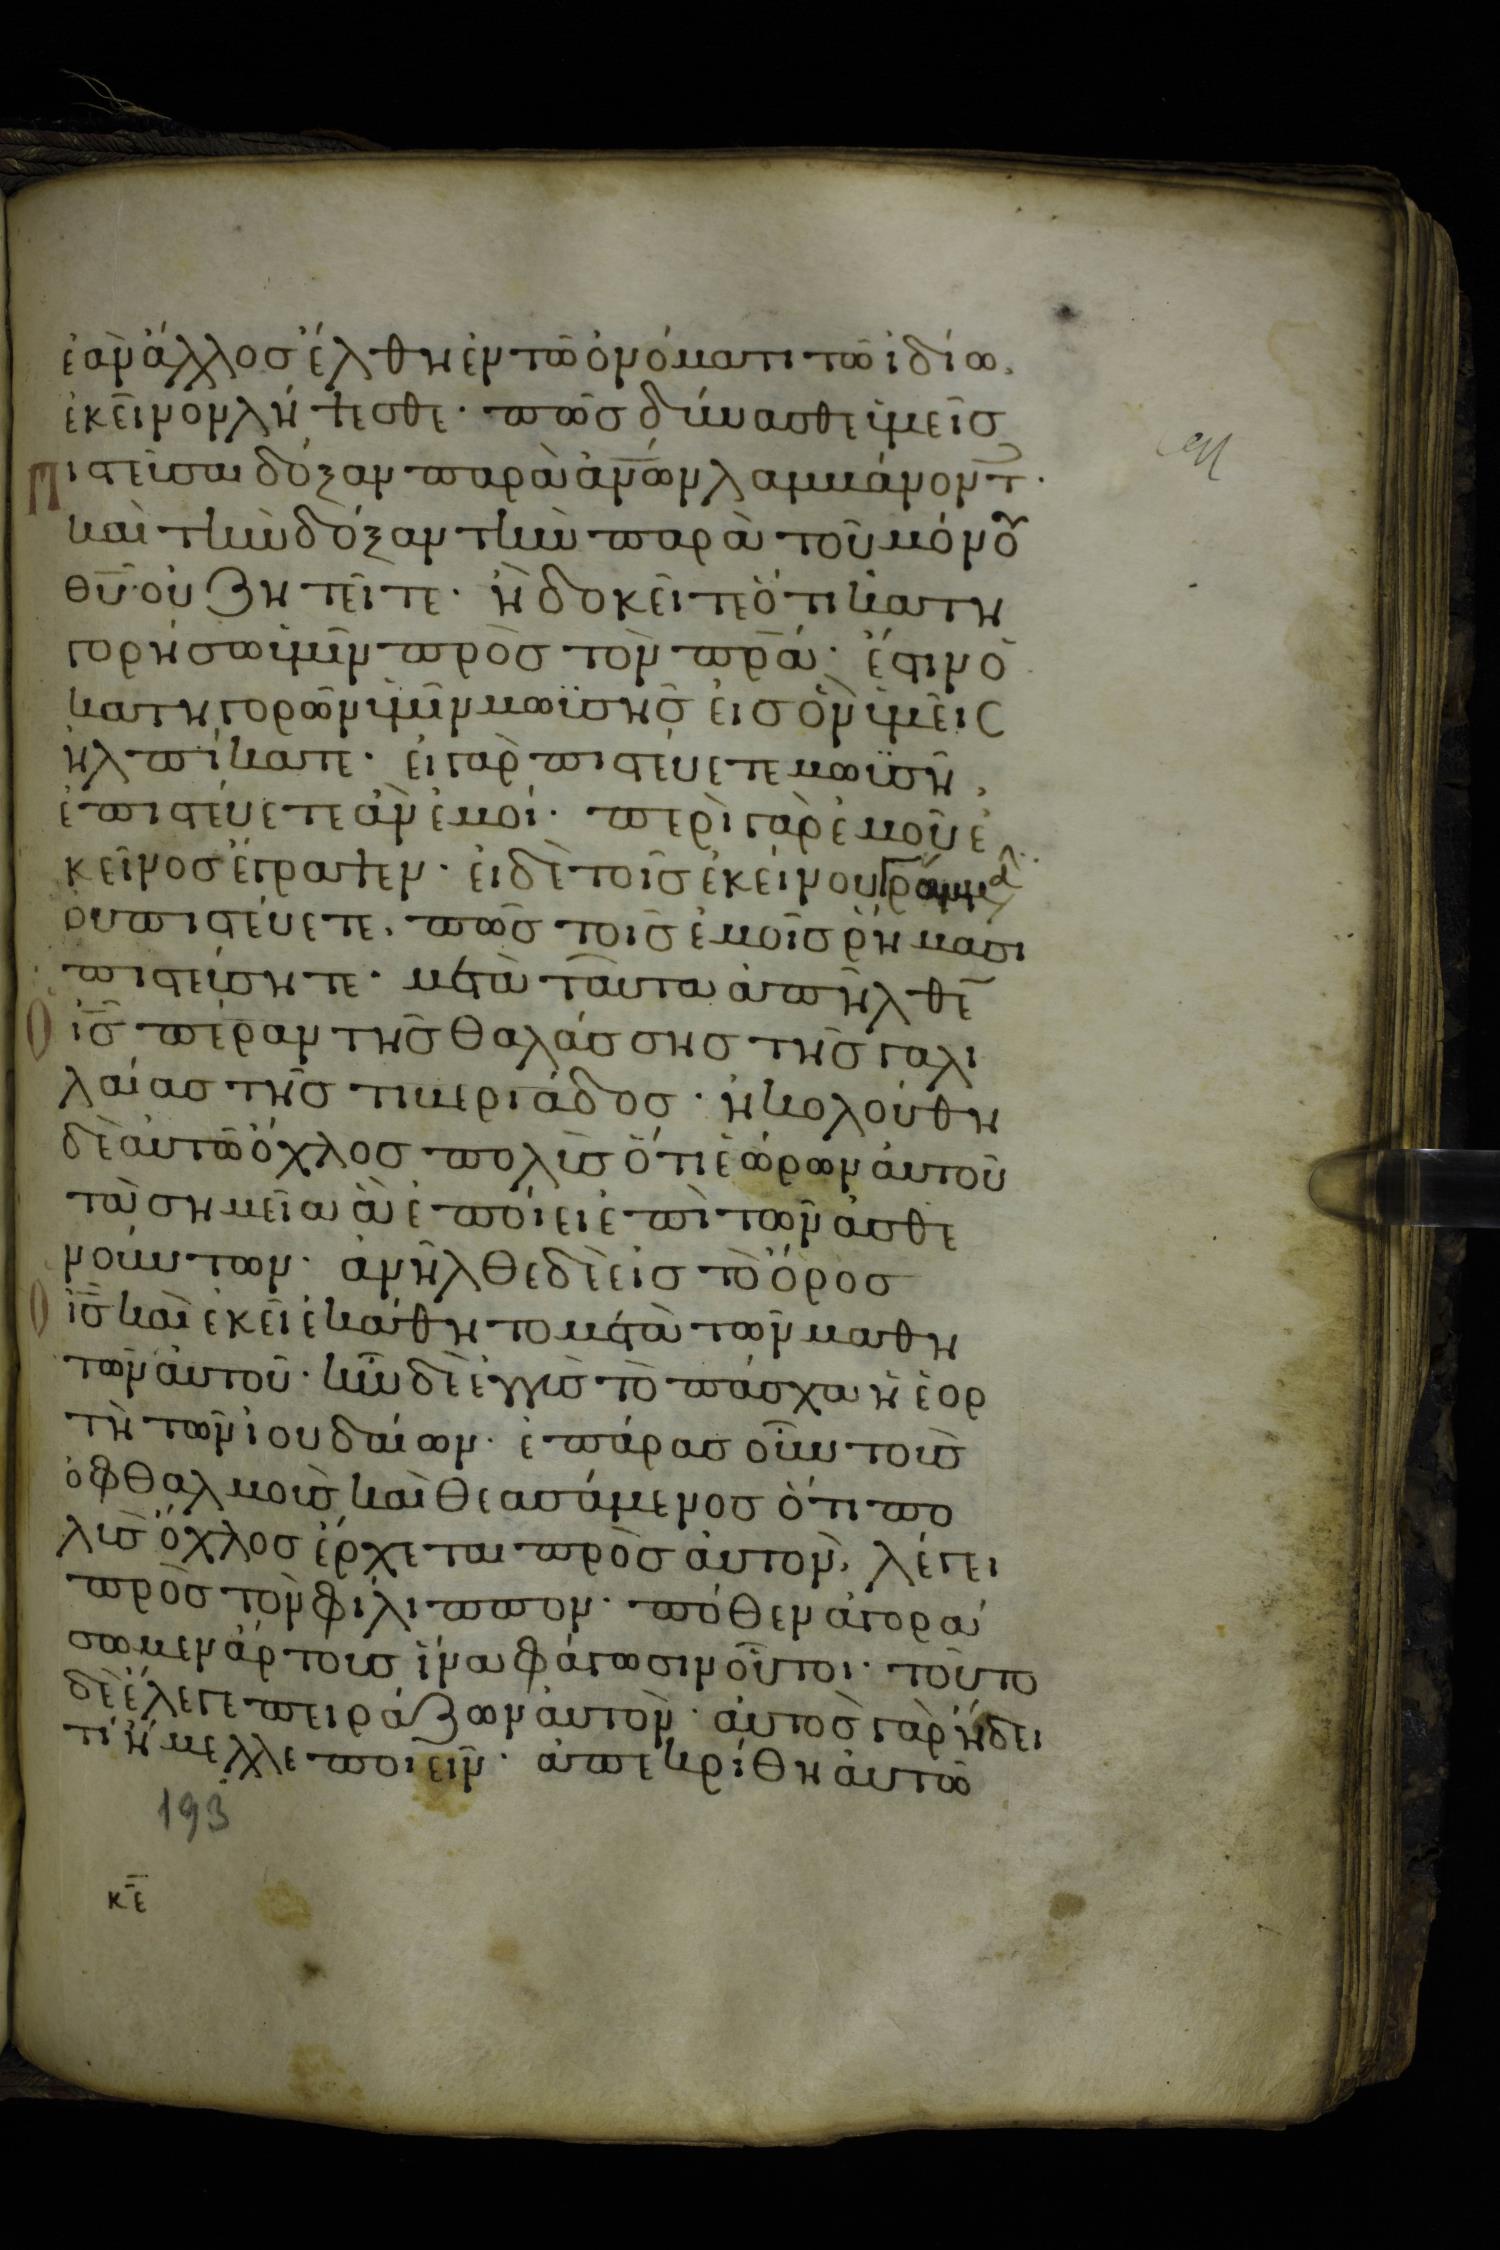 ἐὰν ἄλλος ἔλθη ἐν τῶ ὀνόματι τῶ ἰδίω,
ἐκεῖνον λήψεσθε· πῶς δύνασθε ὑμεῖς
Πιστεῦσαι δόξαν παρὰ ἀν̅ω̅ν λαμβάνοντ̅·
καὶ τὴν δόξαν τὴν παρὰ τοῦ μόνου
θυ̅ οὐ ζητεῖτε· ἢ δοκεῖτε ὅτι κατη
γορήσω ὑμῖν πρὸς τὸν πρ̅α· ἔστιν ὁ
κατηγορῶν ὑμῖν μωϋσῆς εἰς ὃν ὑμεῖς
ἠλπίκατε· εἰ γὰρ πιστεύετε μωϋσῆ,
ἐπιστεύετε ἂν ἐμοί· περὶ γὰρ ἐμοῦ ἐ
κεῖνος ἔγραψεν· εἰ δὲ τοῖς ἐκείνου γράμμα
οὐ πιστεύετε, πῶς τοῖς ἐμοῖς ῥήμασι
πιστεύσητε· μετὰ ταῦτα ἀπῆλθε̅
Ὁ ις̅ πέραν τῆς θαλάσσης τῆς γαλι
λαίας τῆς τιβεριάδος· ἠκολούθη
δὲ αὐτῶ ὄχλος πολὺς ὅτι ἑώρων αὐτοῦ
τὰ σημεῖα ἃ ἐποίει ἐπὶ τῶν ἀσθε
νούντων· ἀνῆλθε δὲ εἰς τὸ ὄρος
Ὁ ις̅ καὶ ἐκεῖ ἐκάθητο μετὰ τῶν μαθη
τῶν αὐτοῦ· ἦν δὲ ἐγγὺς τὸ πάσχα ἡ ἑορ
τὴ τῶν ἰουδαίων· ἐπάρας οὖν τοὺς
ὀφθαλμοὺς καὶ θεασάμενος ὅτι πο
λὺς ὄχλος ἔρχεται πρὸς αὐτὸν, λέγει
πρὸς τὸν φίλιππον· πόθεν ἀγορά
σωμεν ἄρτους ἵνα φάγωσιν οὗτοι· τοῦτο
δὲ ἔλεγε πειράζων αὐτὸν· αὐτὸς γὰρ ἤδει
τί ἤμελλε ποιεῖν· ἀπεκρίθη αὐτῶ
193
κ̅ε̅